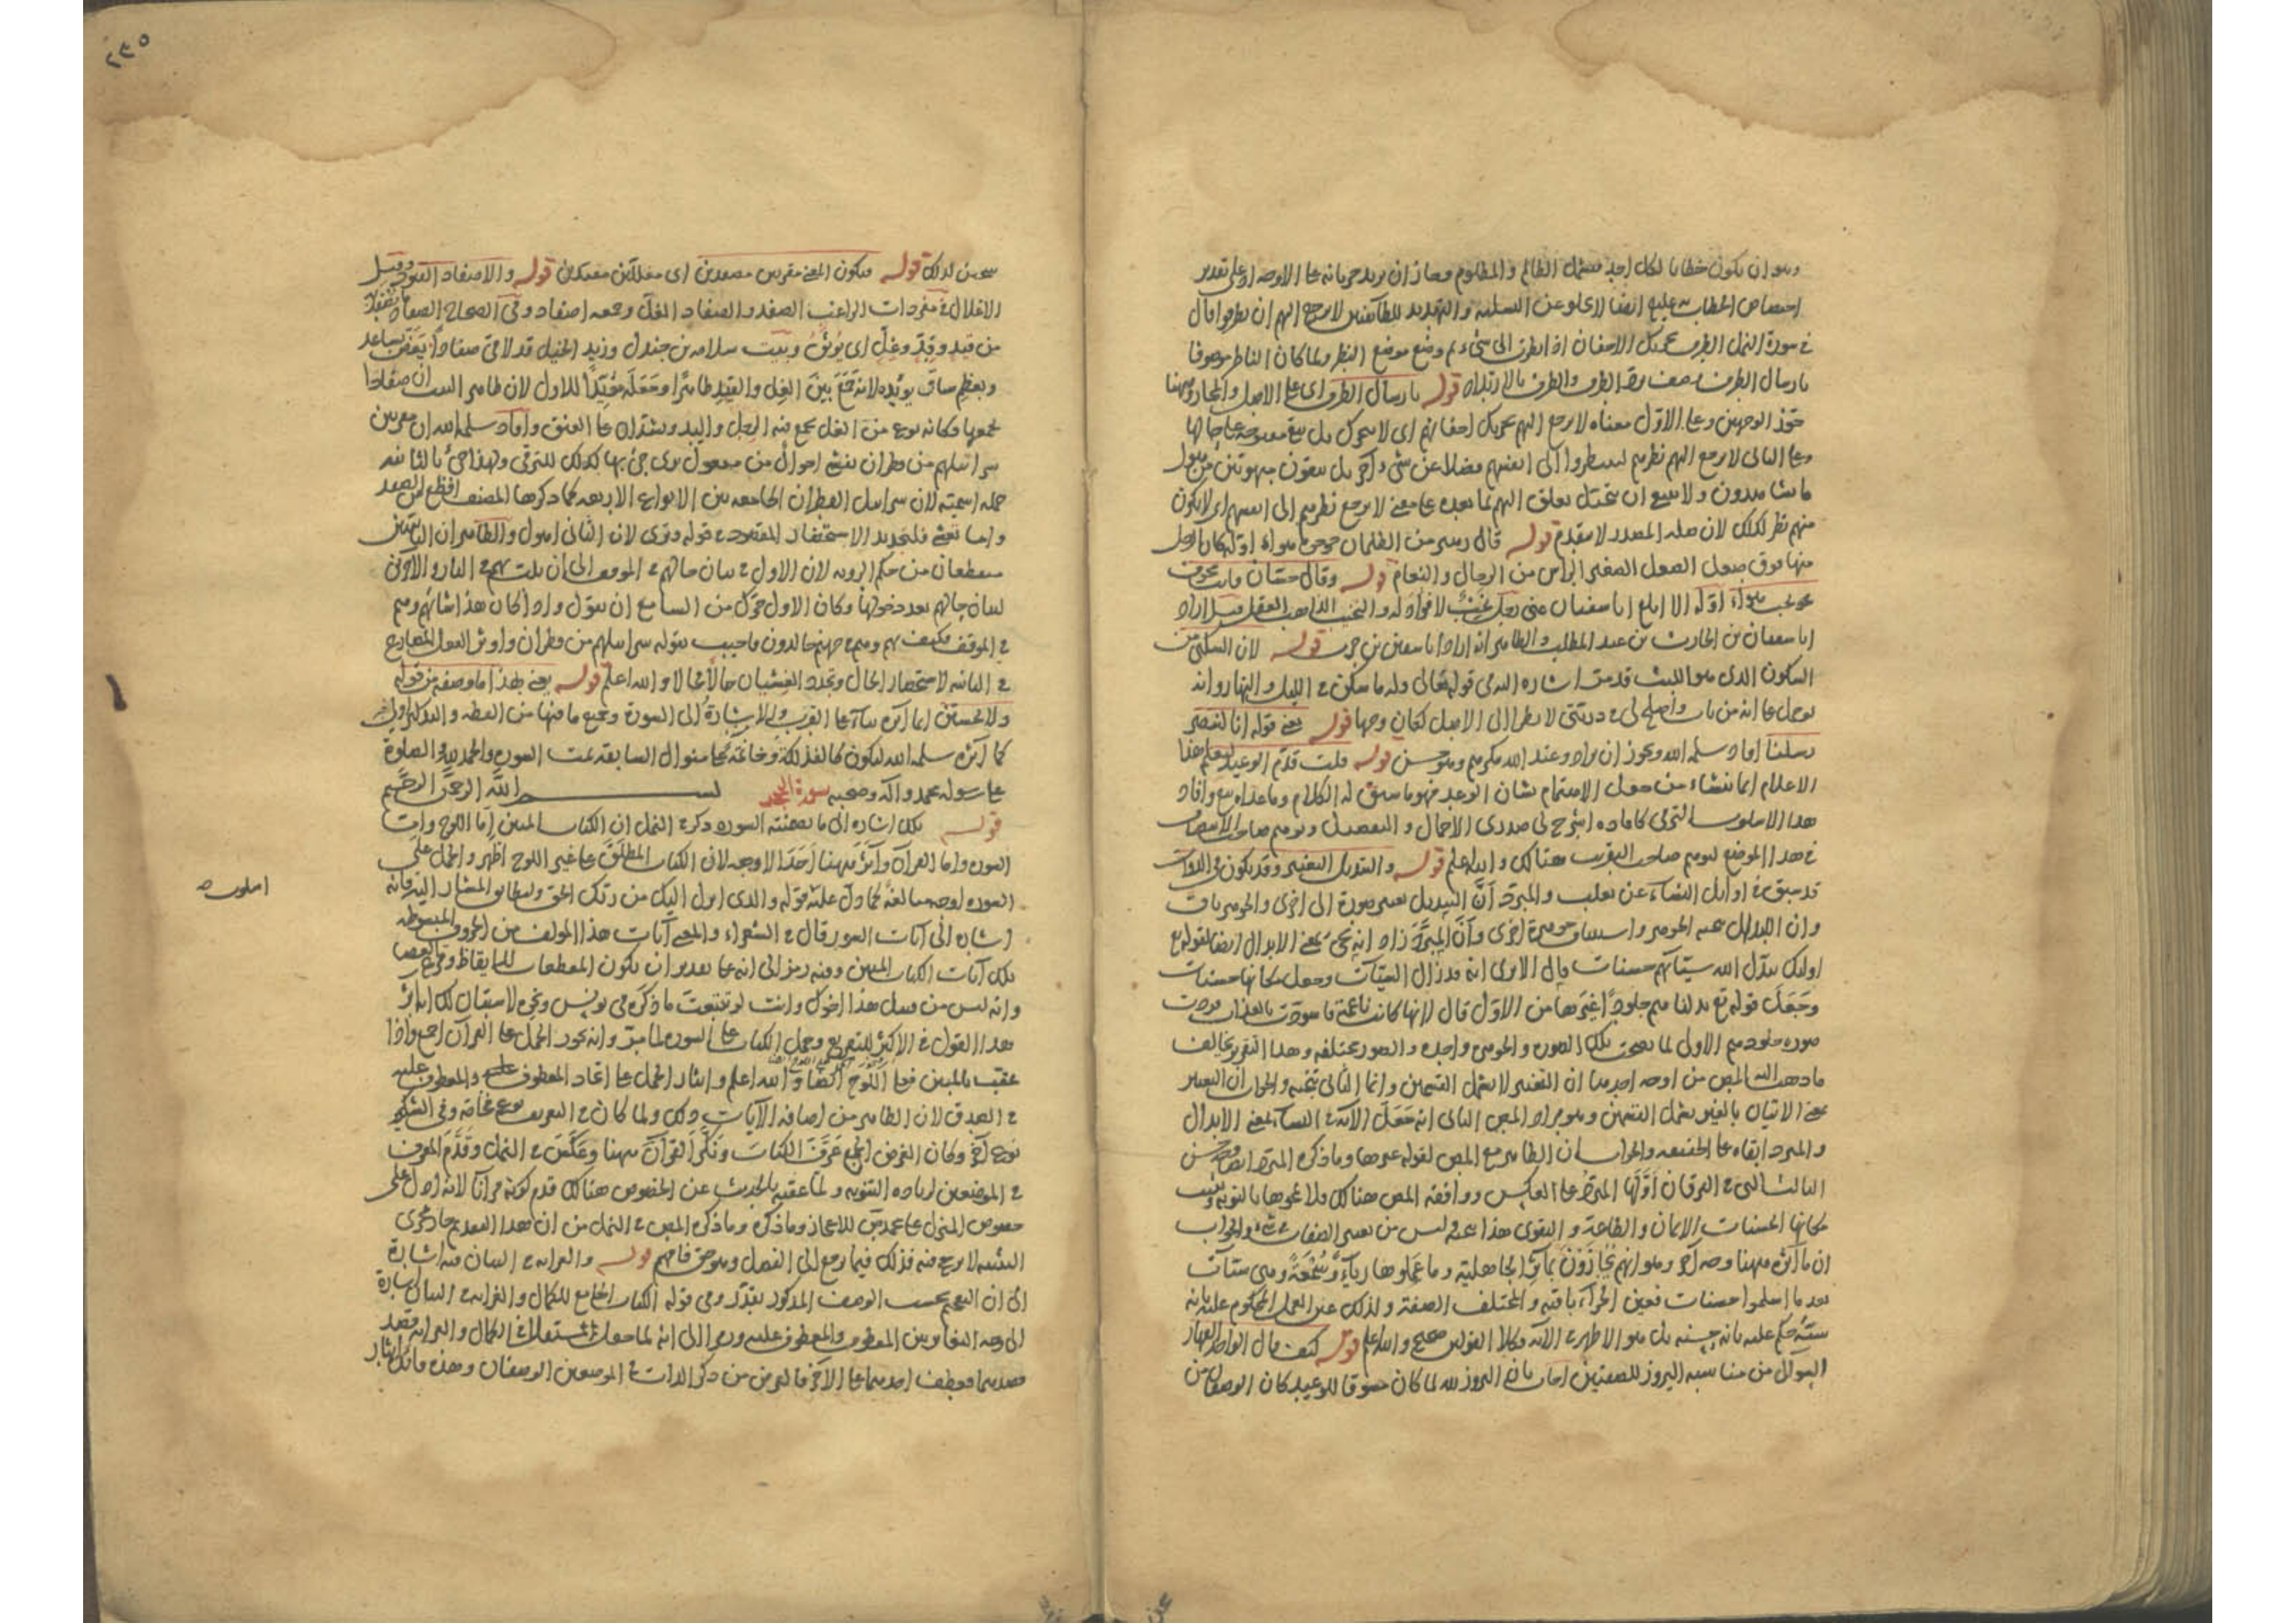 وهو ان يكون خطابا لكل احد فيشمل الظالم والمظلوم وجاز ان يريد جريانه على الاوجه اذ على تقدير
اختصاص الخطاب به عليه ايضا لا يخلو عن التسلية والتهديد للظالمين لا يرجع اليهم ان يطرفوا قال
في سورة النمل الطرف تحريك الاجفان اذا نظرت الى شيء ثم وضع موضع النظر ولما كان الناظر موصوفا
بارسال الطرف وصف برد الطرف والطرف بالارتداد قوله بارسال الطرف اى على الاصل والمجاز وههنا
جوز الوجهين وعلى الاول معناه لا يرجع اليهم تحريك اجفانهم اى لا يتحرك بل تبقى مفتوحة على حالها
وعلى الثانى لا يرجع اليهم نظرهم لينظروا الى انفسهم فضلا عن شيء آخر بل يبقون مبهوتين من هول
ما يشاهدون ولا ينبغى ان يتخيل تعلق اليهم بما بعده على معنى لا يرجع نظرهم الى انفسهم اى لا يكون
منهم نظر كذلك لان صلة المصدر لا يتقدم قوله قال زهير من الظلمان جؤجؤه هواء اوله كان الرحل
منها فوق صعل الصعل الصغير الراس من الرجال والنعام قوله وقال حسان فانت مجوف
نخب هواء اوله الا ابلغ ابا سفيان عنى رجل نخب لا فؤاد له والنخب الذاهب العقل قيل اراد
ابا سفيان بن الحارث بن عبد المطلب والظاهر انه اراد ابا سفيان بن حرب قوله لان السكنى من
السكون الذى هو اللبث قد مرت اشارة الله فى قوله تعالى وله ما سكن في الليل والنهار وانه
لو حمل على انه من باب واصلح لى في ذريتى لا بالنظر الى الاصل لكان وجها قوله يعنى قوله انا لننصر
رسلنا افاد سلمه الله ويجوز ان يراد وعند الله مكرهم وهو حسن قوله قلت قدم الوعد ليعلم هذا
الاعلام انما نشاء من جعل الاهتمام بشان الوعد فهو ما سيق له الكلام وما عداه تبع وافاد
هذا الاسلوب الترقى كما فاده اشرح لى صدرى الاجمال والتفصيل وتوهم صاحب الانتصاف
في هذا الموضع لتوهم صاحب التقريب هنالك والله اعلم قوله والتبديل التغيير وقد يكون في الذوات
قد سبق في اوائل النساء عن ثعلب والمبرد أنّ التبديل تغيير صورة الى اخرى والجوهر باق
وان الابدال تنحية الجوهر واستيناف جوهرة اخرى وأنّ المبرّد زاد انه يجيء بمعنى الابدال ايضا لقوله تع
اولئك يبدّل الله سيّآتهم حسنات قال الا ترى انه قد ازال السيّآت وجعل مكانها حسنات
وجعل قوله تع بدلناهم جلوداً غيرها من الاول قال لانها كانت ناعمة فاسودت بالعذاب فردت
صورة جلودهم الاولى لما نضجت تلك الصورة والجوهر واحدة والصور مختلفة وهذا التقرير يخالف
ما ذهب اليه المص من اوجه احدها ان التغيير لا يشمل القسمين وانما الثانى تنحية والجواب ان التغيير
بمعنى الاتيان بالغير يشمل القسمين وهو مراد المص الثانى انه جعل الآية في النساء بمعنى الابدال
والمبرد ابقاه على الحقيقة والجواب ان الظاهر مع المص لقوله غيرها وما ذكره المبرد ايضا وجه حسن
الثالث التى في الفرقان أوّلها المبرد على العكس ووافقه المص هنالك فلا نمحوها بالتوبة ونثبت
مكانها الحسنات الايمان والطاعة والتقوى هذا عنه وليس من تغيير الصفات في شيء والجواب
ان ما آثره ههنا وجه آخر وهو انهم يجازون بمآثر الجاهلية وما عملوها رياء وسمعة وهى سيّآت
بعد ما اسلموا حسنات فعين الجزاء باقية والمختلف الصفة ولذلك عين العمل المحكوم عليه بانه
سيّئة حكم عليه بانه حسنة بل هو الاظهر في الآية وكلا القولين صحيح والله اعلم قوله كيف قال الواحد القهار
السؤال من مناسبة البروز للصفتين اجاب بان البروز لله لما كان مسوقا للوعيد كان الوصفان من
٢٣٥
حسن لذلك قوله فيكون المعنى مقرنين مصفدين اى مغللين مقيدين قوله والاصفاد القيود وقيل
الاغلال في مفردات الراغب الصفد والصفاد الغل وجمعه اصفاد وفي الصحاح الصفاد ما يوثق به
من قيد وقدّ وغلّ اى يوثق وبيت سلامة بن جندل وزيد الخيل قد لاقى صفاداً يعض بساعد
وبعظم ساق يؤيده لانه جمع بين الغل والقيد ظاهرًا وجعله مؤيّداً للاول لان ظاهر البيت ان صفادا
يجمعها وكانه نوع من الغل يجمع فيه الرجل واليد ويشدان على العنق وافاد سلمه الله ان مقرنين
سرابيلهم من قطران تغشى احوال من مفعول ترى جيء بها كذلك للترقى ولهذا جيء بالثانية
جملة اسمية لان سرابيل القطران الجامعة بين الانواع الاربعة كما ذكرها المصنف افظع من الصفد
واما تغشى فلتجديد الاستحضار المقصود في قوله وترى لان الثانى اهول والظاهر ان الثانيتين
منقطعان من حكم الرؤية لان الاول في بيان حالهم في الموقف الى ان يلقى بهم في النار والآخرين
لبيان حالهم بعد دخولها وكان الاول حرّك من السامع ان يقول واذا كان هذا شانهم وهم
في الموقف فكيف بهم وهم في جهنم خالدون فاجيب بقوله سرابيلهم من قطران واوثر الفعل المضارع
في الثانية لاستحضار الحال وتجدد الغشيان حالا فحالا والله اعلم قوله يعنى بهذا ما وصفه من قوله
ولا تحسبن انما آثره بناء على القرب والاشارة الى السورة وجميع ما فيها من العظة والتذكير اولى
كما آثره سلمه الله ليكون كالفذلكة وخاتمة على منوال السابقة تمت السورة والحمد لله والصلوة
على رسوله محمد وآله وصحبه سورة الحجر بسم الله الرحمن الرحيم
قوله تلك اشارة الى ما تضمنته السورة ذكر في النمل ان الكتاب المبين اما اللوح واما
السورة واما القرآن وآثر ههنا احد الاوجه لان الكتاب المطلق على غير اللوح اظهر والحمل على
السورة اوجه مبالغة كما دل عليه قوله والذى انزل اليك من ربك الحق وليطابق المشار اليه فانه
اشارة الى آيات السور قال في الشعراء والمعنى آيات هذا المؤلف من الحروف المبسوطة
تلك آيات الكتاب المبين وفيه رمز الى انه على تقدير ان يكون المقطعات للايقاظ وقرع العصا
وانه ليس من فصل هذا اخوك وانت لو تتبعت ما ذكره فى يونس ونحوه لاستبان لك ايثار
هذا القول في الاكثر للتقريع وحمل الكتاب على السورة لما مر وانه يجوز الحمل على القرآن اجمع واذا
عقب بالمبين فعلى اللوح ايضا والله اعلم وايثار الحمل على اتحاد المعطوف والمعطوف عليه
في الصدق لان الظاهر من اضافة الآيات ذلك ولما كان في التعريف نوع فخامة وفى التنكير
نوع آخر وكان الغرض الجمع عرّف الكتاب ونكّر القرآن ههنا وعكس في النمل وقدّم المعرف
في الموضعين لزيادة التنويه ولما عقبه بالحديث عن الخصوص هنالك قدم كونه قرآنا لانه ادل على
خصوص المنزل على محمد صلى للاعجاز وما ذكره وما ذكره المص في النمل من ان هذا التقديم جار مجرى
التثنية لا يرجح فيه فذلك فيما يرجع الى الفصل وهو حق فافهم قوله والغرابة في البيان فيه اشارة
الى ان التفخيم بحسب الوصف المذكور تقدّر وفى قوله الكتاب الجامع للكمال والغرابة في البيان اشارة
الى وجه التغاير بين المعطوف والمعطوف عليه ورمز الى انه لما جعل مستقلا في الكمال والغرابة قصد
قصدهما فعطف احدهما على الآخر فالغرض من ذكر الذات في الموضعين الوصفان وهذه فائدة ايثار
اسلوب